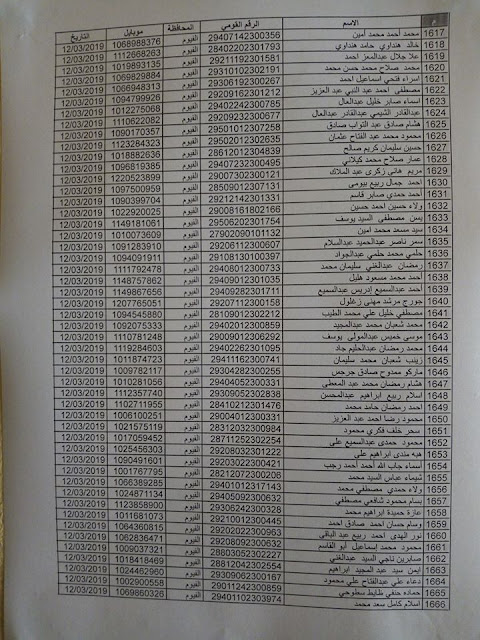 م الاسم الرقم القومي المحافظة موبايل التاريخ
1617 محمد أحمد محمد أمين 29407142300356 الفيوم 1068988376 12/03/2019
1618 خالد هنداوي حامد هنداوي 28402202301793 الفيوم 1112668263 12/03/2019
1619 علا جلال عبدالمعز احمد 29211192301581 الفيوم 1019893135 12/03/2019
1620 محمد صلاح محمد حسن محمد 29310102302191 الفيوم 1069829884 12/03/2019
1621 اسراء فتحي اسماعيل احمد 29306192300267 الفيوم 1066948313 12/03/2019
1622 مصطفى احمد عبد النبي عبد العزيز 29209162301212 الفيوم 1094799926 12/03/2019
1623 اسماء صابر خليل عبدالعال 29402242300785 الفيوم 1012275068 12/03/2019
1624 عبدالقادر الشيمي عبدالقادر عبدالعال 29209232300677 الفيوم 1110622082 12/03/2019
1625 هشام صادق عبد التواب صادق 29501012307258 الفيوم 1090170357 12/03/2019
1626 محمود محمد عبد الفتاح عثمان 29502012302635 الفيوم 1123284323 12/03/2019
1627 حسين سليمان كريم صالح 28612012304839 الفيوم 1018882636 12/03/2019
1628 عمار صلاح محمد كيلاني 29407232300495 الفيوم 1096819385 12/03/2019
1629 مريم هانى زكرى عبد الملاك 29007302300121 الفيوم 1220523899 12/03/2019
1630 احمد جمال ربيع بيومى 28509012307131 الفيوم 1097500959 12/03/2019
1631 احمد حمدي صابر قاسم 29212142301331 الفيوم 1090399704 12/03/2019
1632 ولاء حسين احمد حسين 29008161802166 الفيوم 1022920025 12/03/2019
1633 يمن مصطفي السيد يوسف 29506202301754 الفيوم 1149181061 12/03/2019
1634 سيد مسعد محمد أمين 27902090101132 الفيوم 1010073609 12/03/2019
1635 سمر ناصر عبدالحميد عبدالسلام 29206112300607 الفيوم 1091283910 12/03/2019
1636 حلمي محمد حلمي عبدالجواد 29108130100397 الفيوم 1094091911 12/03/2019
1637 رمضان عبدالغني سليمان محمد 29408012300733 الفيوم 1111792478 12/03/2019
1638 احمد محمد مسعود هليل 29409012301035 الفيوم 1148757862 12/03/2019
1639 احمد عبدالسميع إدريس عبدالسميع 29409282301711 الفيوم 1149867656 12/03/2019
1640 جورج مرشد مهنى زغلول 29207112300158 الفيوم 1207765051 12/03/2019
1641 مصطفي خليل علي محمد الطيب 28109012302212 الفيوم 1094545880 12/03/2019
1642 محمد شعبان محمد عبدالمجيد 29402012300859 الفيوم 1092075333 12/03/2019
1643 موسي خميس عبدالمولى يوسف 29009012306292 الفيوم 1110781248 12/03/2019
1644 محمد رمضان عبدالحليم جاد 29402262301095 الفيوم 1119284603 12/03/2019
1645 زينب شعبان محمد سليمان 29411162300741 الفيوم 1011874723 12/03/2019
1646 ماركو ممدوح صادق جرجس 29304282300255 الفيوم 1009782117 12/03/2019
1647 هشام رمضان محمد عبد المعطي 29404052300331 الفيوم 1010281056 12/03/2019
1648 اسلام ربيع ابراهيم عبدالمحسن 29309052302838 الفيوم 1112357740 12/03/2019
1649 احمد رمضان حامد محمد 28410212301476 الفيوم 1102711955 12/03/2019
1650 محمود رضا احمد عبد العزيز 29004012300331 الفيوم 1006100251 12/03/2019
1651 سحر خلف فكري محمود 28312032300984 الفيوم 1021575119 12/03/2019
1652 محمود حمدى عبدالسميع على 28711252302254 الفيوم 1017059452 12/03/2019
1653 هبه مندى ابراهيم على 29208032301222 الفيوم 1025456303 12/03/2019
1654 أسماء جاب الله أحمد رجب 29203022300421 الفيوم 1090491601 12/03/2019
1655 شيماء عباس السيد محمد 28212072300206 الفيوم 1001767795 12/03/2019
1656 ولاء حمدي مصطفي محمد 29401012317143 الفيوم 1066389285 12/03/2019
1657 بسام محمود شافعي مصطفي 29405092300632 الفيوم 1024871134 12/03/2019
1658 عازة حميدة ابراهيم محمد 29306242300328 الفيوم 1123858900 12/03/2019
1659 وسام حسان احمد صادق احمد 29210012300445 الفيوم 1011681073 12/03/2019
1660 نور الهدى احمد ربيع عبد الباقى 29202022300963 الفيوم 1064360815 12/03/2019
1661 محمود محمد إسماعيل أبو القاسم 29208092300632 الفيوم 1062836471 12/03/2019
1662 صابرين ناجي السيد عبدالغني 28803052302227 الفيوم 1009037321 12/03/2019
1663 ايمن سيد عبد المجيد ابراهيم 28812042302554 الفيوم 1018418469 12/03/2019
1664 دعاء علي عبدالفتاح علي محمود 29309062300167 الفيوم 1024462960 12/03/2019
1665 حماده حنفي سطوحي 29011242300259 الفيوم 1002900558 12/03/2019
1666 اسلام كامل سعد محمد 29401102303974 الفيوم 1069860326 12/03/2019